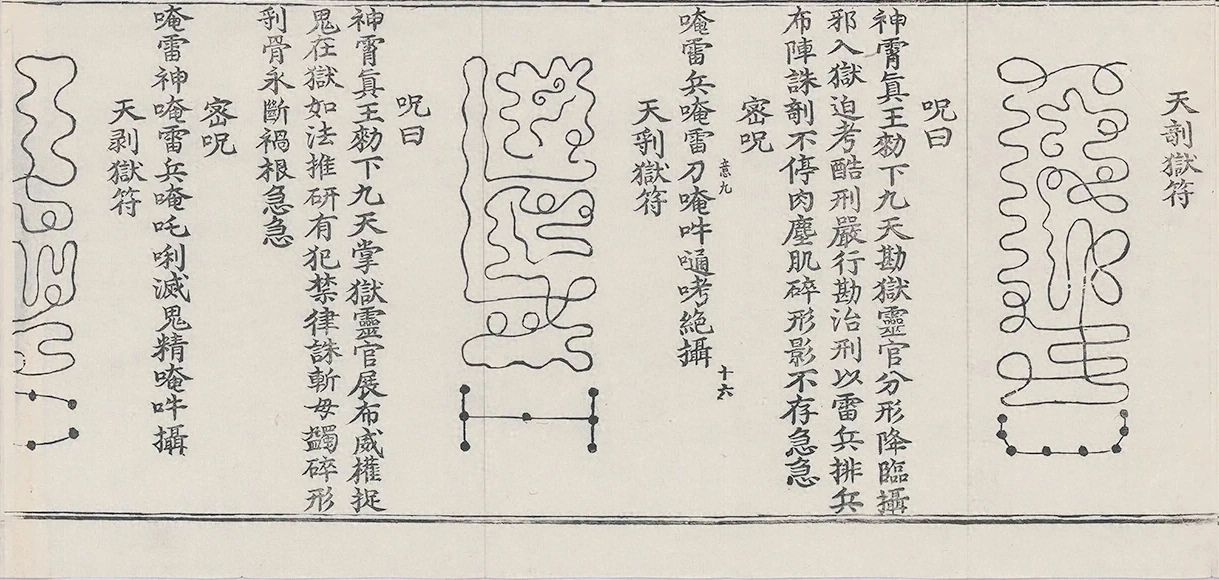 天剳獄符
呪曰
神霄眞王勑下九天勘獄靈官分形降臨攝
邪入獄迫考酷刑嚴行勘治刑以雷兵排兵
布陣誅剳不停肉塵肌碎形影不存急急
密呪
唵雷兵唵雷刀唵吽嗵咾絶攝
意九
十六
天刴獄符
呪曰
神霄眞王勑下九天掌獄靈官展布威權捉
鬼在獄如法推研有犯禁律誅斬毋蠲碎形
刴骨永斷禍根急急
密呪
唵雷神唵雷兵唵吒唎滅鬼精唵吽攝
天剥獄符